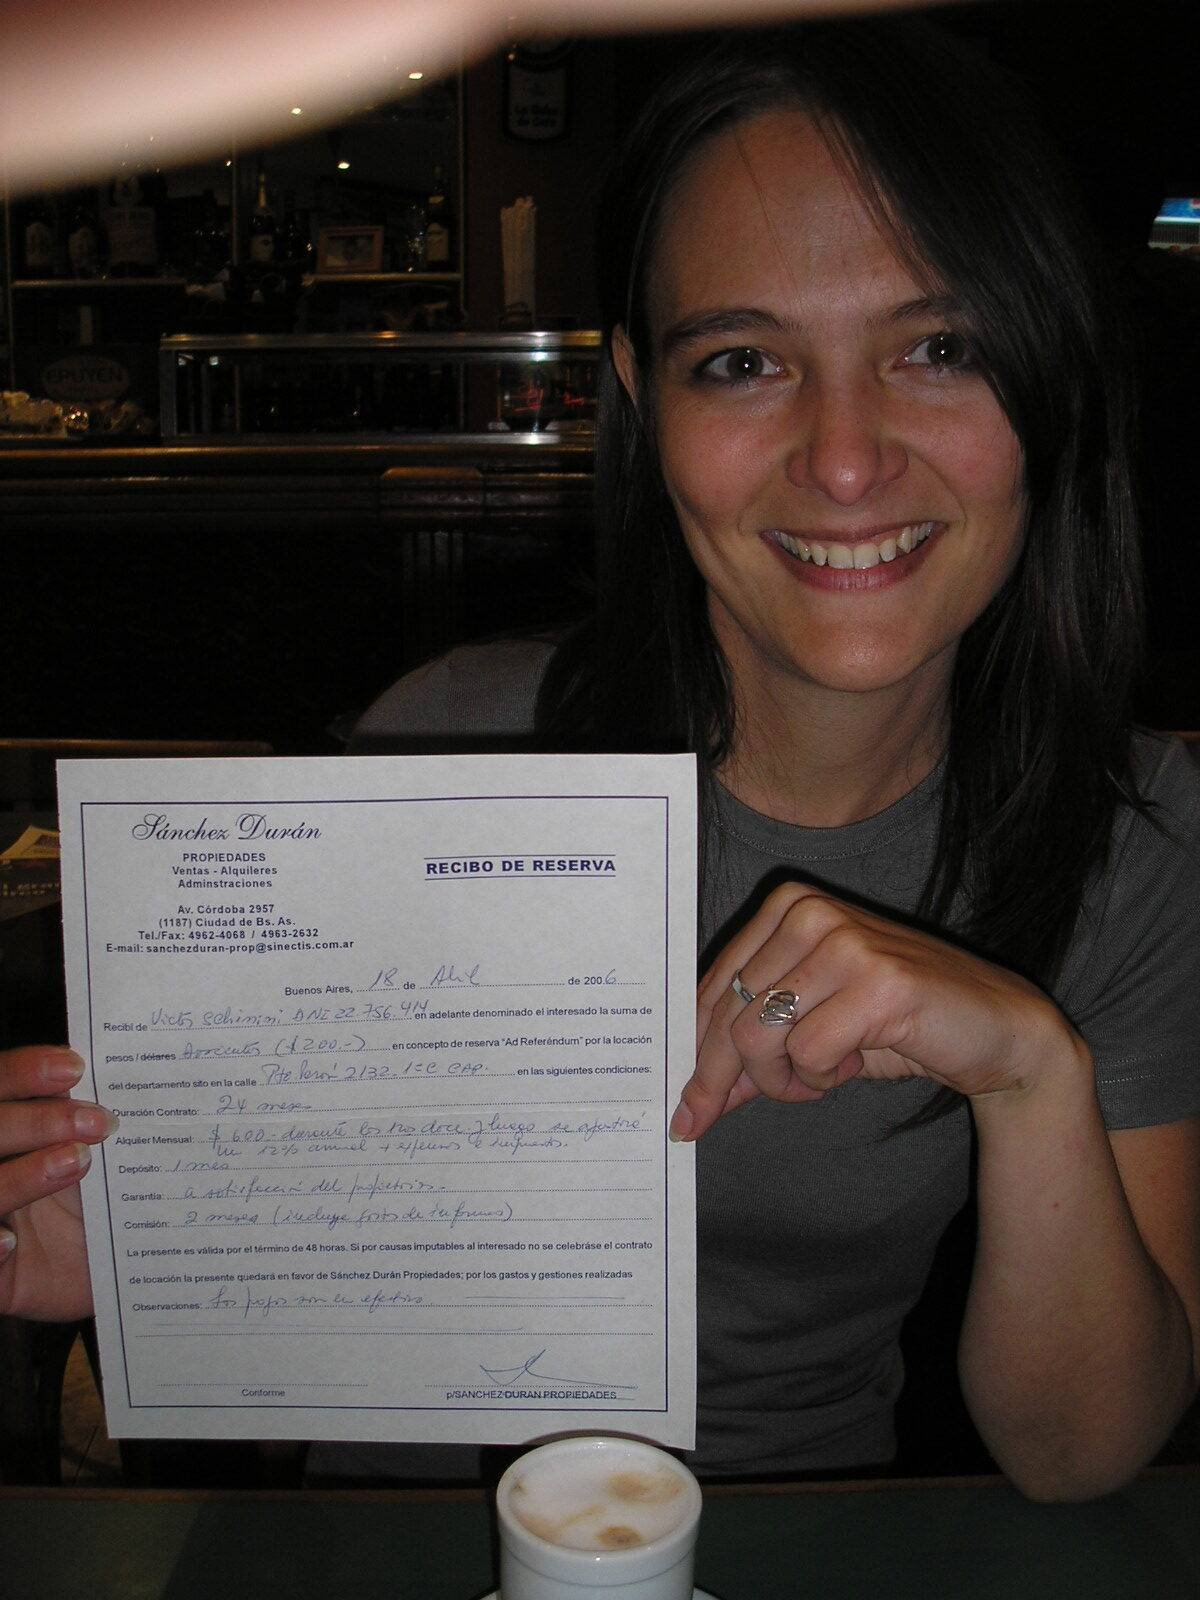 EPUYEN
Sánchez Durán
PROPIEDADES
Ventas - Alquileres
Adminstraciones
Av. Córdoba 2957
(1187) Ciudad de Bs. As.
Tel./Fax: 4962-4068 / 4963-2632
E-mail: sanchezduran-prop@sinectis.com.ar
RECIBO DE RESERVA
Buenos Aires, 18 de Abril de 2006
Recibí de Victor Schinini DNI 22.756.414 en adelante denominado el interesado la suma de
pesos / dólares doscientos ($ 200.-) en concepto de reserva "Ad Referéndum" por la locación
del departamento sito en la calle Pte Perón 2132 - 1º C CAP. en las siguientes condiciones:
Duración Contrato: 24 meses
Alquiler Mensual: $ 600 - durante los doce y luego se ajustará
un 12% anual + expensas e impuestos.
Depósito: 1 mes
Garantía: a satisfacción del propietario.-
Comisión: 2 meses (incluye gastos de informes)
La presente es válida por el término de 48 horas. Si por causas imputables al interesado no se celebráse el contrato
de locación la presente quedará en favor de Sánchez Durán Propiedades; por los gastos y gestiones realizadas
Observaciones: Los pagos son en efectivo.
Conforme
p/SANCHEZ DURAN PROPIEDADES